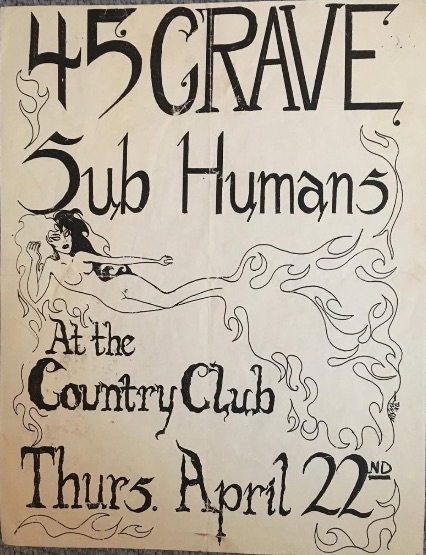 45 GRAVE
Sub Humans
At the
Country Club
Thurs. April 22ND